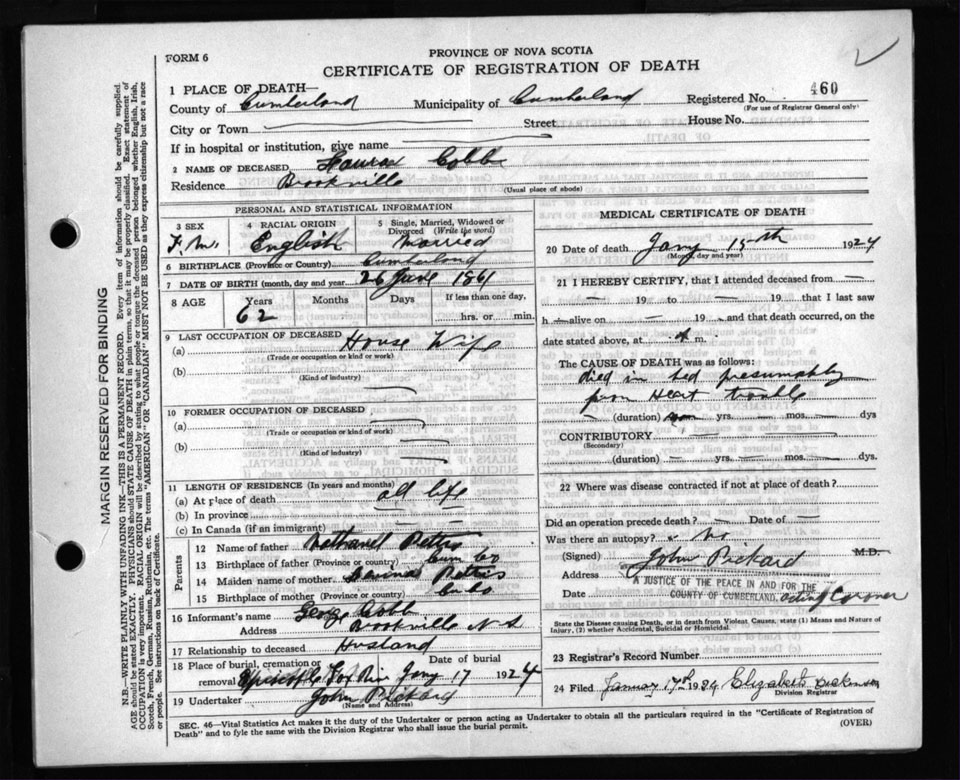 FORM 6
PROVINCE OF NOVA SCOTIA
CERTIFICATE OF REGISTRATION OF DEATH
1 PLACE OF DEATH—
County of Cumberland Municipality of Cumberland Registered No. 460
(For use of Registrar General only)
City or Town — Street — House No.
If in hospital or institution, give name
2 NAME OF DECEASED Laura Cobb
Residence Brookville
(Usual place of abode)
PERSONAL AND STATISTICAL INFORMATION
3 SEX 4 RACIAL ORIGIN 5 Single, Married, Widowed or Divorced (Write the word)
English Married
6 BIRTHPLACE (Province or Country) Cumberland
7 DATE OF BIRTH (month, day and year) 26 June 1861
8 AGE Years Months Days If less than one day,
62 hrs. or min.
9 LAST OCCUPATION OF DECEASED
(a) House Wife
(Trade or occupation or kind or work)
(b)
(Kind of industry)
10 FORMER OCCUPATION OF DECEASED
(a)
(Trade or occupation or kind of work)
(b)
(Kind of industry)
11 LENGTH OF RESIDENCE (In years and months)
(a) At place of death all life
(b) In province
(c) In Canada (if an immigrant)
Parents
12 Name of father Nathaniel Pettis
13 Birthplace of father (Province or country) Cum Co
14 Maiden name of mother Pettis
15 Birthplace of mother (Province or country)
16 Informant's name George Cobb
Address Brookville N S
17 Relationship to deceased Husband
18 Place of burial, cremation or removal Date of burial
Fox River Jany 17 1924
19 Undertaker John Pickard
(Name and Address)
MEDICAL CERTIFICATE OF DEATH
20 Date of death Jany 15th 1924
(Month, day and year)
21 I HEREBY CERTIFY, that I attended deceased from —
— 19 — to — 19 — that I last saw
h — alive on — 19 — and that death occurred, on the
date stated above, at m.
The CAUSE OF DEATH was as follows:
died in bed presumably
from Heart trouble
— (duration) yrs. — mos. — dys
CONTRIBUTORY
(Secondary)
(duration) — yrs. — mos. — dys.
22 Where was disease contracted if not at place of death?
Did an operation precede death? — Date of —
Was there an autopsy? No
(Signed) John Pickard M.D.
Address
A JUSTICE OF THE PEACE IN AND FOR THE
Date COUNTY OF CUMBERLAND, acting Coroner
State the Disease causing Death, or in death from Violent Causes, state (1) Means and Nature of
Injury, (2) whether Accidental, Suicidal or Homicidal.
23 Registrar's Record Number
24 Filed January 17th 1924 Elizabeth Dickinson
Division Registrar
SEC. 46—Vital Statistics Act makes it the duty of the Undertaker or person acting as Undertaker to obtain all the particulars required in the "Certificate of Registration of
Death" and to fyle the same with the Division Registrar who shall issue the burial permit. (OVER)
MARGIN RESERVED FOR BINDING
N.B.—WRITE PLAINLY WITH UNFADING INK—THIS IS A PERMANENT RECORD. Every item of information should be carefully supplied.
AGE should be stated EXACTLY. PHYSICIANS should STATE CAUSE OF DEATH in plain terms, so that it may be properly classified. Exact statement of
OCCUPATION is very important. RACIAL ORIGIN will be described by stating to what people or tongue the deceased person belonged whether English, Irish,
Scotch, French, German, Russian, Ruthenian, etc. The terms "AMERICAN" OR "CANADIAN" MUST NOT BE USED as they express citizenship but not a race
or people. See instructions on back of Certificate.